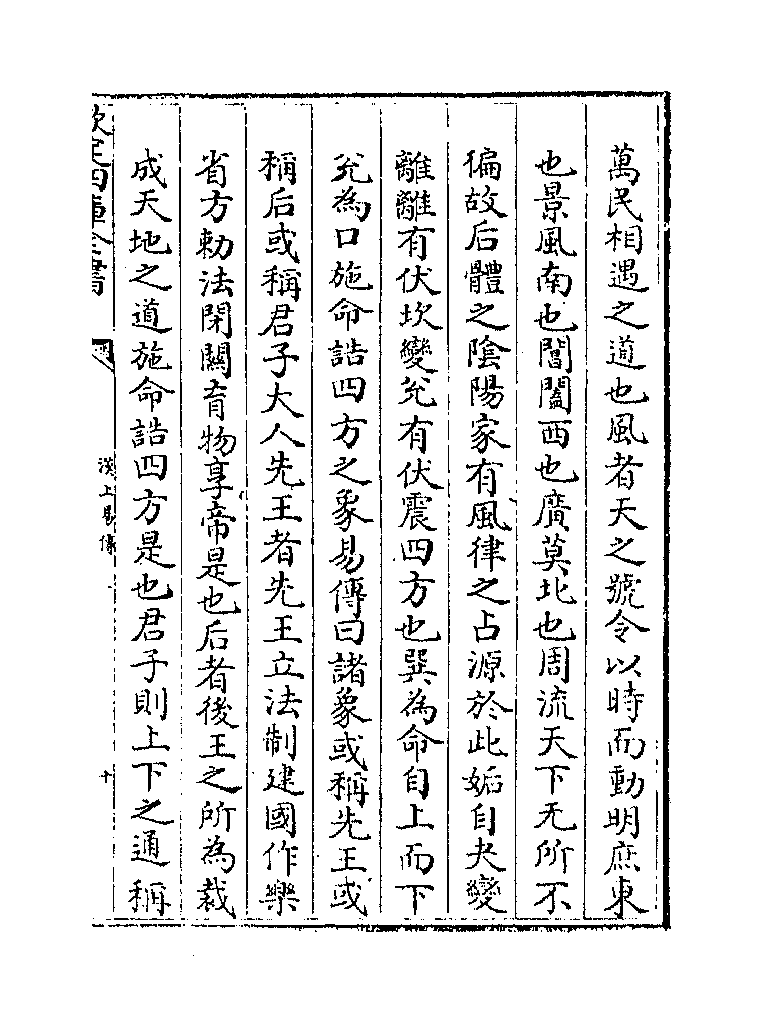 萬民相遇之道也風者天之號令以時而動明庶東
也景風南也閶闔西也廣莫北也周流天下无所不
徧故后體之陰陽家有風律之占源於此姤自夬變
離離有伏坎變兊有伏震四方也巽為命自上而下
兊為口施命誥四方之象易傳曰諸象或稱先王或
稱后或稱君子大人先王者先王立法制建國作樂
省方勅法閉關育物享帝是也后者後王之所為裁
成天地之道施命誥四方是也君子則上下之通稱
欽定四庫全書
漢上易傳
十